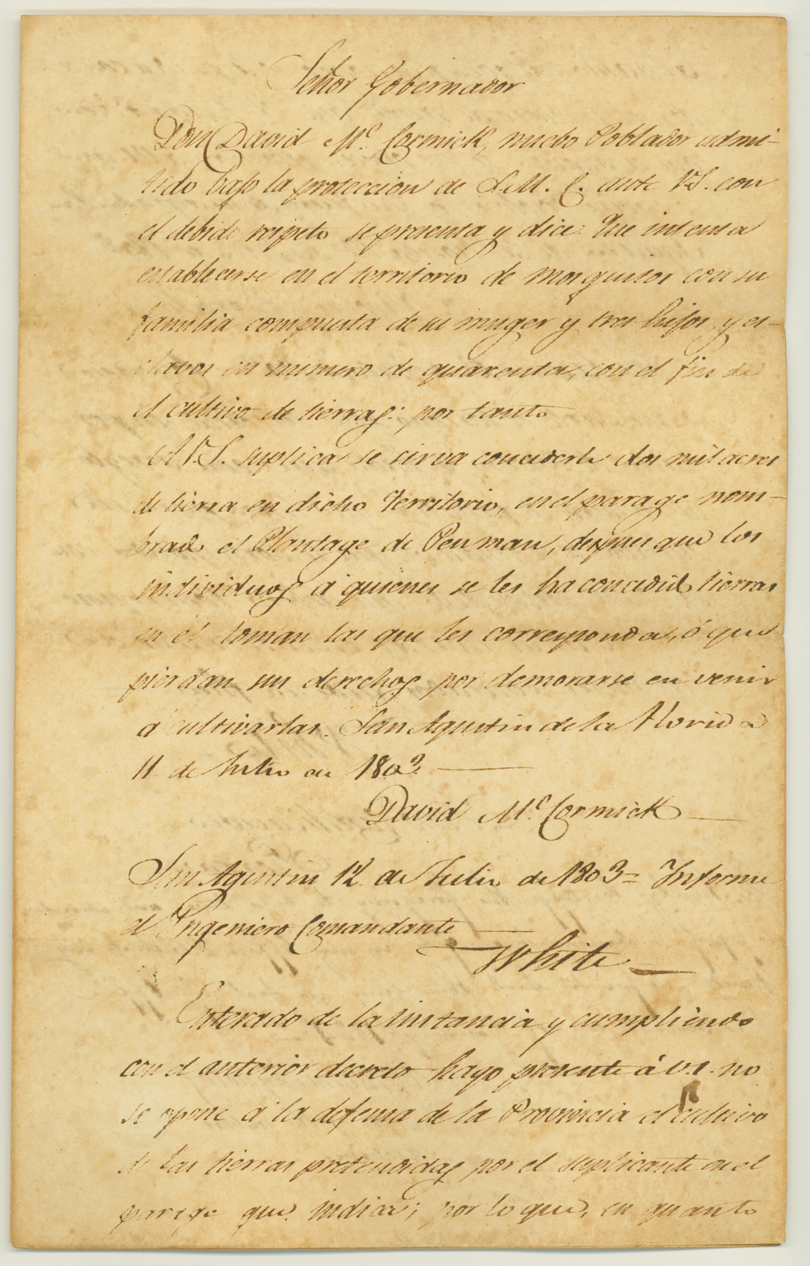 Señor Gobernador
Don David Mc. Cormick, nuebo Poblador admi-
tido bajo la proteccion de S.M. C. ante VS. con
el debido respeto se presenta y dice: Que intenta
establecerse en el territorio de mosquitos con su
familia compuesta de su muger y tres hijos, y es-
clavos en numero de quarenta, con el fin de
el cultivo de tierras: por tanto
A V.S. suplica se sirva concederle dos mil acres
de tierra en dicho Territorio, en el parage nom-
brado el Plantage de Penman, despues que los
individuos á quienes se les ha concedido tierras
en él toman las que les corresponda, ó que
pierdan sus derechos por demorarse en venir
á cultivarlas. San Agustin de la Florida
11 de Julio de 1803
David Mc. Cormick
San Agustin 12 de Julio de 1803= Informe
el Ingeniero Comandante
White
Enterado de la instancia y cumpliendo
con el anterior decreto hago presente á V.S. no
se opone á la defensa de la Provincia el cultivo
de las tierras pretendidas por el suplicante en el
parage que indica; por lo que, en quanto